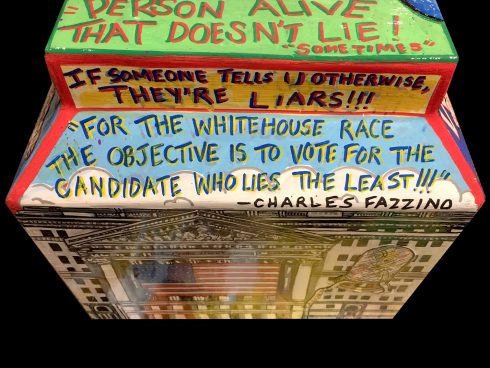 "PERSON ALIVE
THAT DOESN'T LIE!
"SOMETIMES"
IF SOMEONE TELLS U OTHERWISE,
THEY'RE LIARS!!!
"FOR THE WHITEHOUSE RACE
THE OBJECTIVE IS TO VOTE FOR THE
CANDIDATE WHO LIES THE LEAST!!!"
-CHARLES FAZZINO